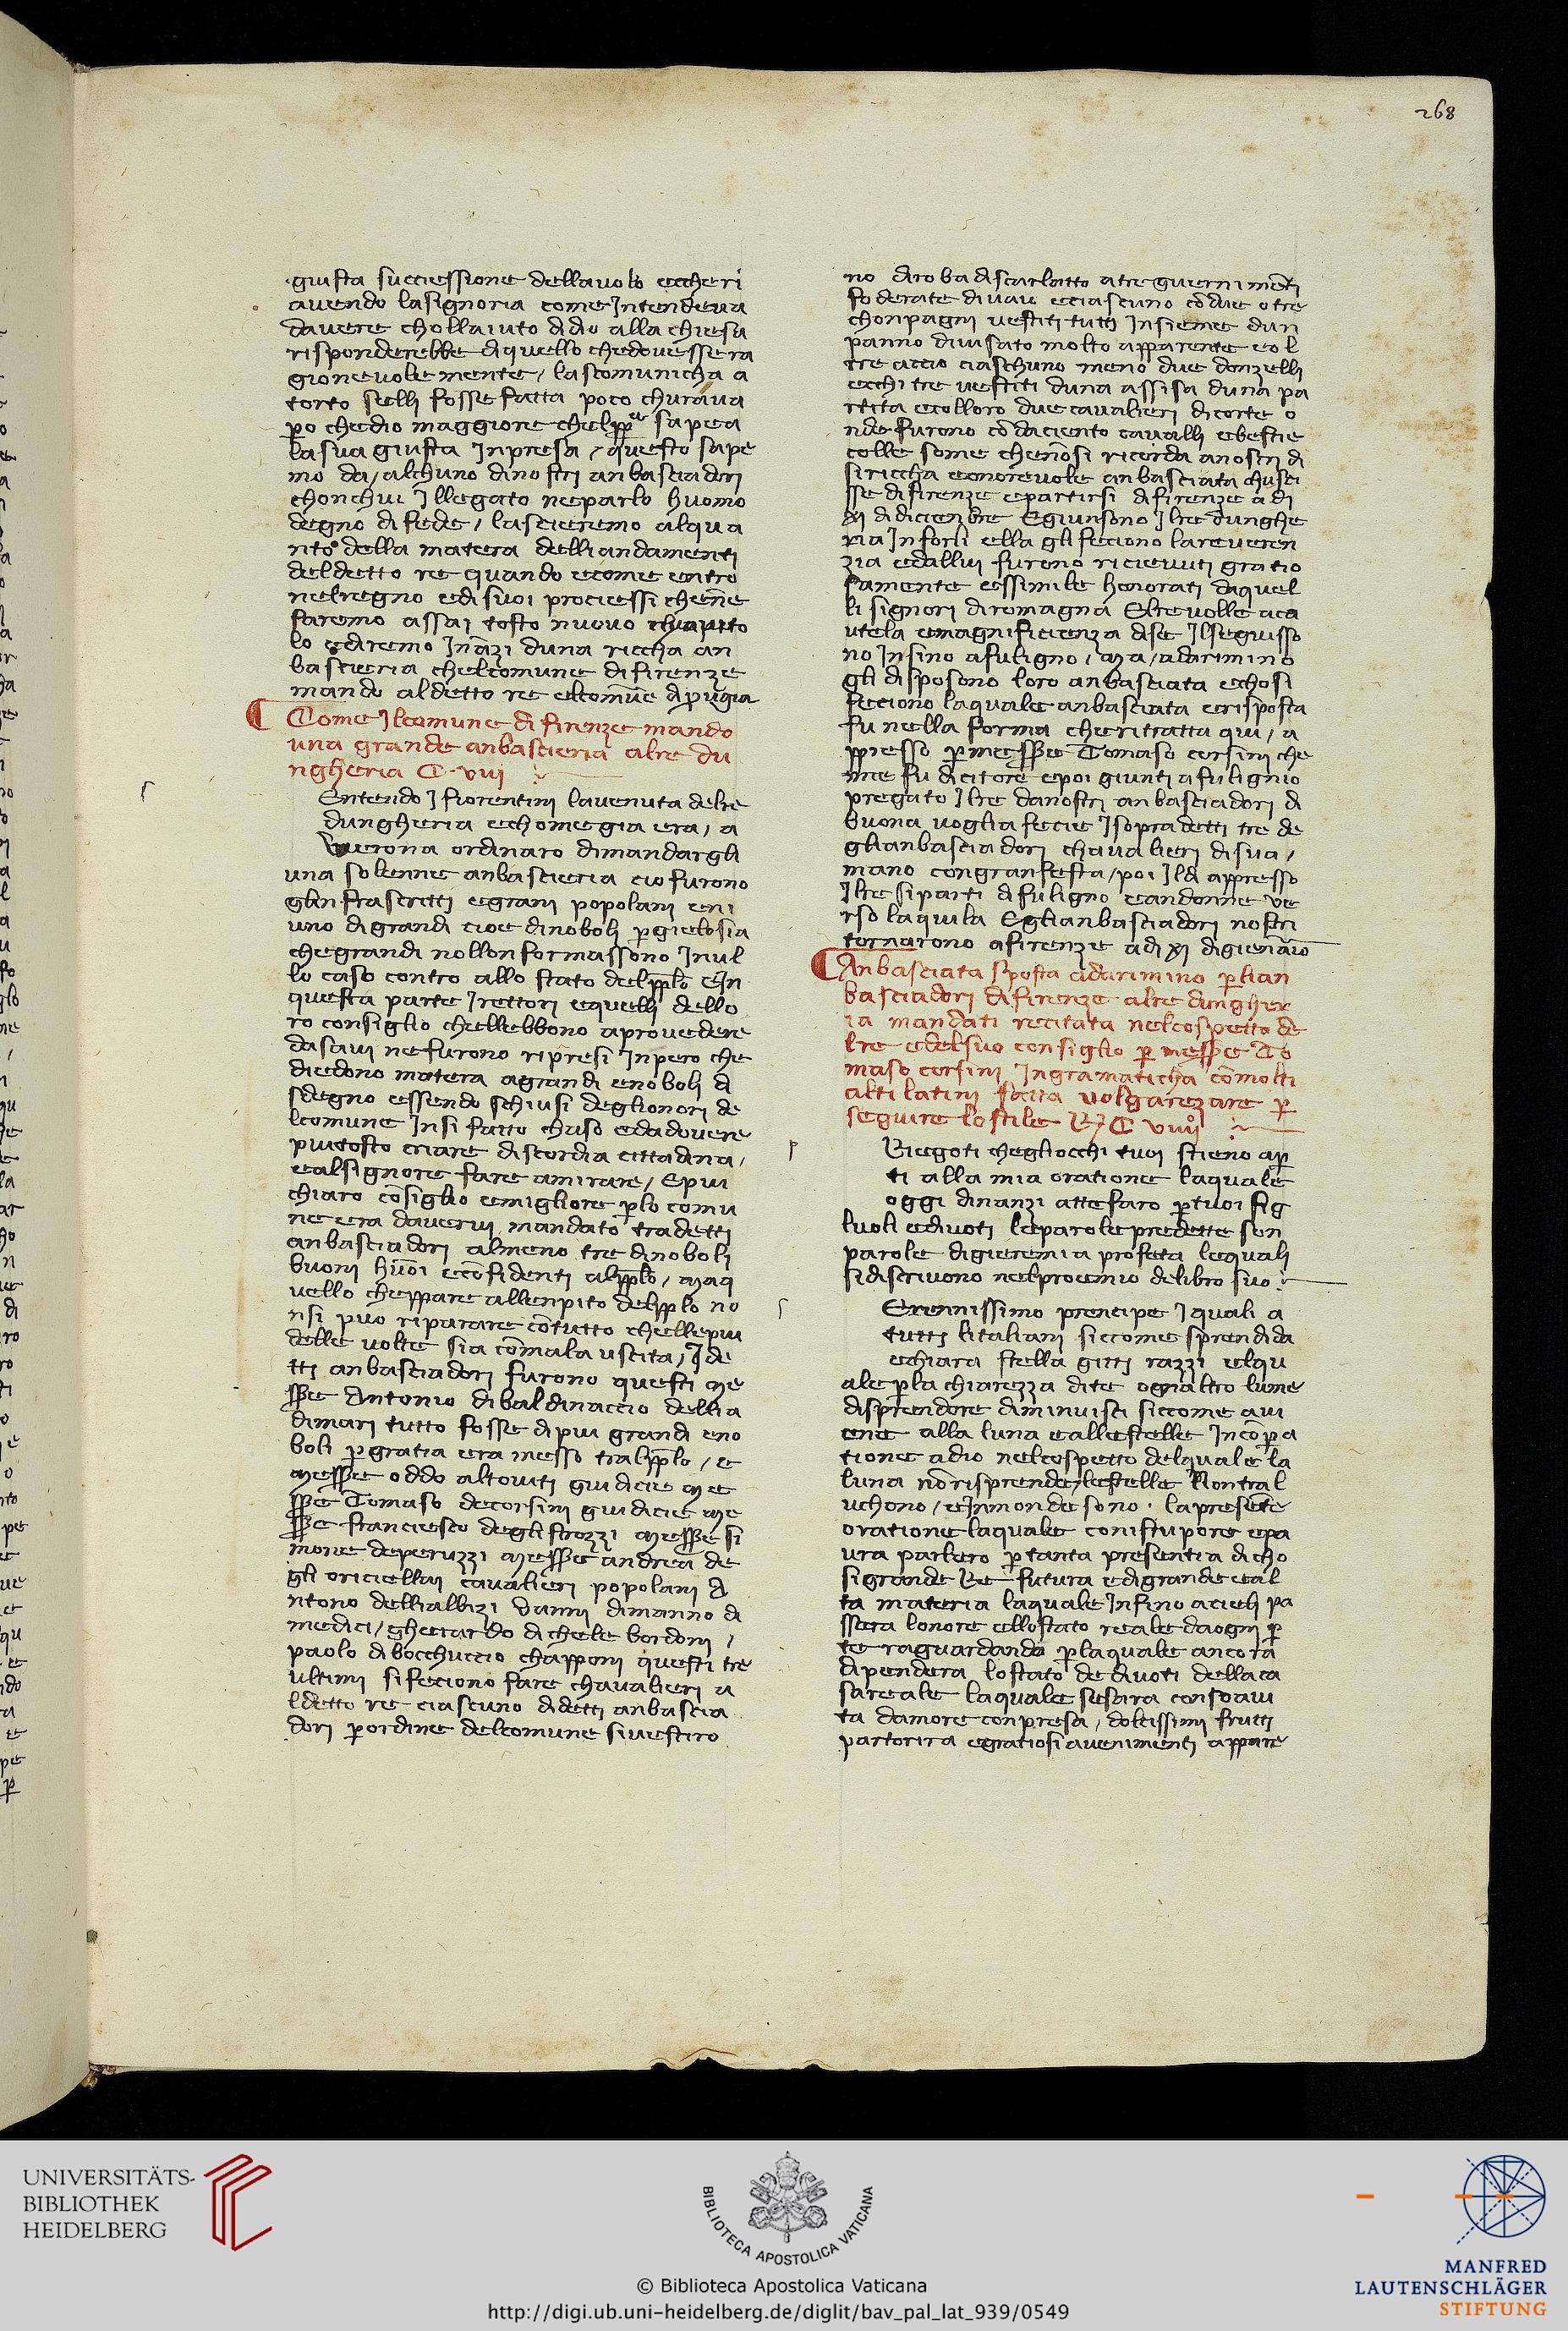 268
giusta successione dellavolo eccheri
avendo lasignoria come Jntendeva
davere chollaiuto didio alla chiesa
risponderebbe diquello chedovessera
gionevole mente / lascomunicha a
torto selli fosse fatta poco churava
ꝑo chedio maggiore chelpp̄ sapea
lasua giusta Jnpresa / questo sape
mo da / alchuno dinostri anbasciadori
chonchui Jllegato neparlo huomo
degno difede / lascieremo alqua
nto della matera delliandamenti
deldetto re quando ecome entro
nelregno edi suoi prociessi chen̄e
faremo assai tosto nuovo chapito
lo ediremo Jnāzi duna riccha an
bascieria chelcomune difirenze
mando aldetto re elcomūe dip̄ugia
Come Jlcomune di firenze mando
una grande anbascieria alre du
ngheria C viii
Entendo J fiorentini lavenuta delre
dungheria echomegia era / a
verona ordinaro dimandargli
una solenne anbascieria cio furono
glinfrascritti egrani popolani en i
uno digrandi cioe dinoboli ꝑgielosia
chegrandi nollonformassono Jnul
lo caso contro allo stato delpp̄lo EJn
questa parte Jrettori equelli dello
ro consiglio chellebbono aprovedere
dasavi nefurono ripresi Jnpero che
diedono matera agrandi enoboli di
sdegno essendo schiusi deglionori de
lcomune Jnsi fatto chaso edadovere
piutosto criare discordia cittadina /
ealsignore fare amirare / Epiu
chiaro cōsiglio emigliore ꝑlo comu
ne era davervi mandato tradetti
anbasciadori almeno tre dinoboli
buoni huōi ecōfidenti alpp̄lo / maq
uello cheppare allenpito delpp̄lo no
nsi puo riparare cōtutto chellepiu
delle volte sia cōmala uscita / J de
tti anbasciadori furono questi me
sse Antonio dibaldinaccio dellia
dimari tutto fosse dipiu grandi eno
boli ꝑgratia era messo tralpp̄lo / e
messe oddo altoviti giudicie me
sse Tomaso decorsini giudicie me
sse franciesco deglistrozzi messe si
mone deperuzzi messe andrea de
gli oriciellai cavalieri popolani A
ntono delliallizi vanni dimanno di
medici / gherardo dichele bordoni /
paolo dibocchuccio chapponi questi tre
ultimi si feciono fare chavalieri a
ldetto re ciascuno didetti anbascia
dori ꝑordine delcomune sivestiro
no diroba discarlatto atreguernimēti
foderate divaio eciascuno cōdue otre
chonpagni vestiti tutti Jnsieme dun
panno divisato molto apparente eol
tre accio ciaschuno meno due donzelli
ecchi tre vestiti duna assisa duna pa
rtita ecolloro duecavalieri dicorte o
nde furono cōdaciento cavalli ebestie
colle some chenōsi ricorda anostri di
siriccha eonorevole anbasciata chusci
sse difirenze epartirsi difirenze adi
xi didicienbre Egiunsono Jlre dunghe
ria Jnforli ella gli feciono lareveren
zia edallui furono ricievuti gratio
samente essimile honorati daquel
li signori diromagna Elrevolle aca
utela emagnificienza dise Jlseguisso
no Jnsino afuligno / ma / adarimino
gli disposono loro anbasciata echosi
feciono laquale anbasciata erisposta
fu nella forma cheritratta qui / a
ppresso ꝑmesse Tomaso corsini che
nne fu dicitore epoi giunti afulignio
pregato Jlre danostri anbasciadori di
buona voglia fecie Jsopradetti tre de
glianbasciadori chavalieri disua /
mano congranfesta / poi Jldi appresso
Jlre siparti difuligno eandonne ve
rso laquila Eglianbasciadori nostri
tornarono afirenze adi xi digienaio
Anbasciata sposta adarimino ꝑlian
basciadori difirenze alre dungher
ia mandati recitata nelcospetto de
lre edelsuo consiglio ꝑ messe To
maso corsini Jngramaticha cōmolti
alti latini fatta volgarezare ꝑ
seguire lostile C viiii
Riegoti chegliocchi tuoi stieno aꝑ
ti alla mia oratione laquale
oggi dinanzi attefaro ꝑtuoi fig
luoli edivoti leparolepredette son
parole digieremia profeta lequali
sidiscrivono nelproemio delibro suo
Erennissimo prencipe J quali a
tutti litaliani siccome sprendida
echiara stella gitti razzi elqu
ale ꝑla chiarezza dite ognaltro lume
disprendore diminuisci siccome avi
ene alla luna eallestelle Jncōꝑa
tione adio nelcospetto delquale la
luna nōrisprende / lestelle Nontral
uchono / eJnmonde sono · lapresēte
oratione laquale conistupore epa
ura parlero ꝑtanta presentia dicho
sigrande Re futura edigrande eal
ta materia laquale Jnfino acieli pa
ssera lonore ellostato reale daogni ꝑ
te raguardando ꝑlaquale ancora
dipendera lo stato dedivoti dellaca
sareale laquale sesara consoavi
ta damore conpresa / dolcissimi frutti
partorira egratiosi avenimenti appare
UNIVERSITÄTS-
BIBLIOTHEK
HEIDELBERG
BIBLIOTECA APOSTOLICA VATICANA
© Biblioteca Apostolica Vaticana
http://digi.ub.uni-heidelberg.de/diglit/bav_pal_lat_939/0549
MANFRED
LAUTENSCHLÄGER
STIFTUNG